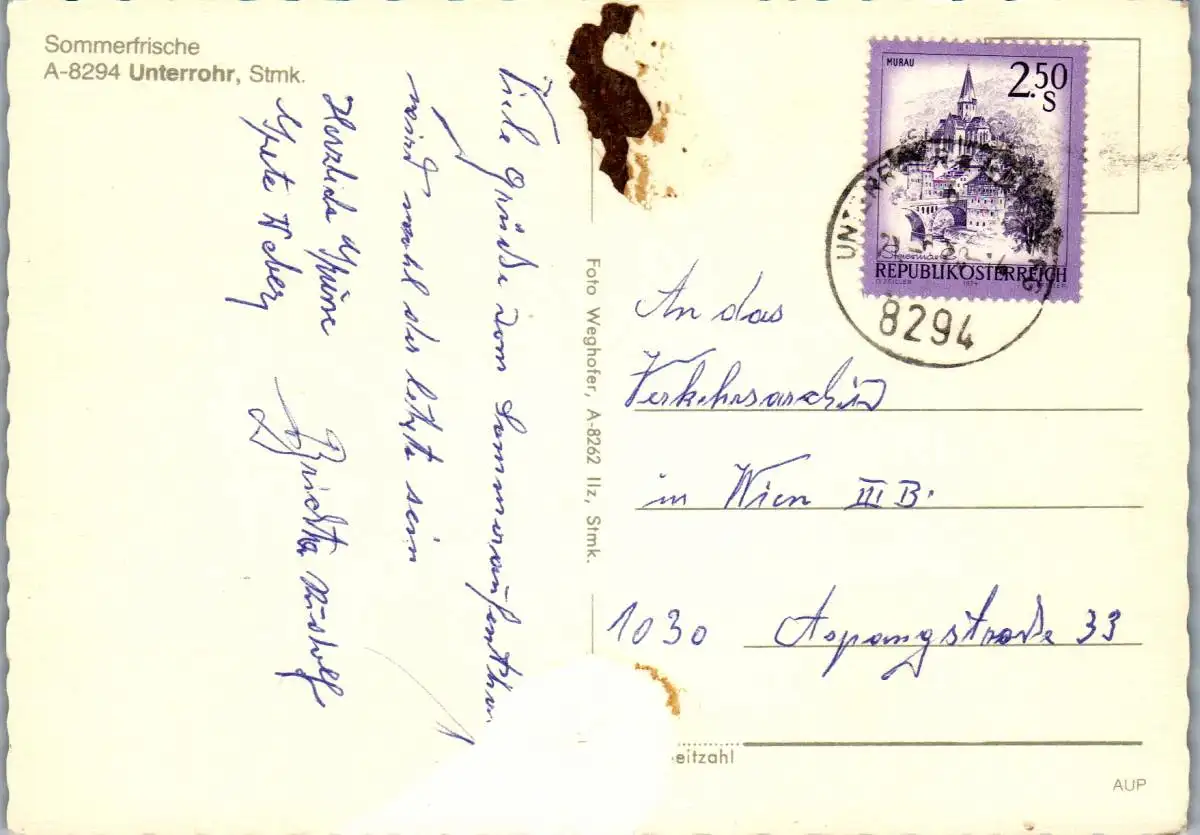 Sommerfrische
A-8294 Unterrohr, Stmk.
Viele Grüße vom Sommeraufentha
wird wohl der letzte sein
Herzliche Grüsse
Grete Weber
Foto Weghofer, A-8262 Ilz, Stmk.
MURAU
2.50
S
Steiermark
REPUBLIK ÖSTERREICH
1974
8294
An das
Verkehrsarchiv
in Wien III B.
1030 Aspangstraße 33
eitzahl
AUP